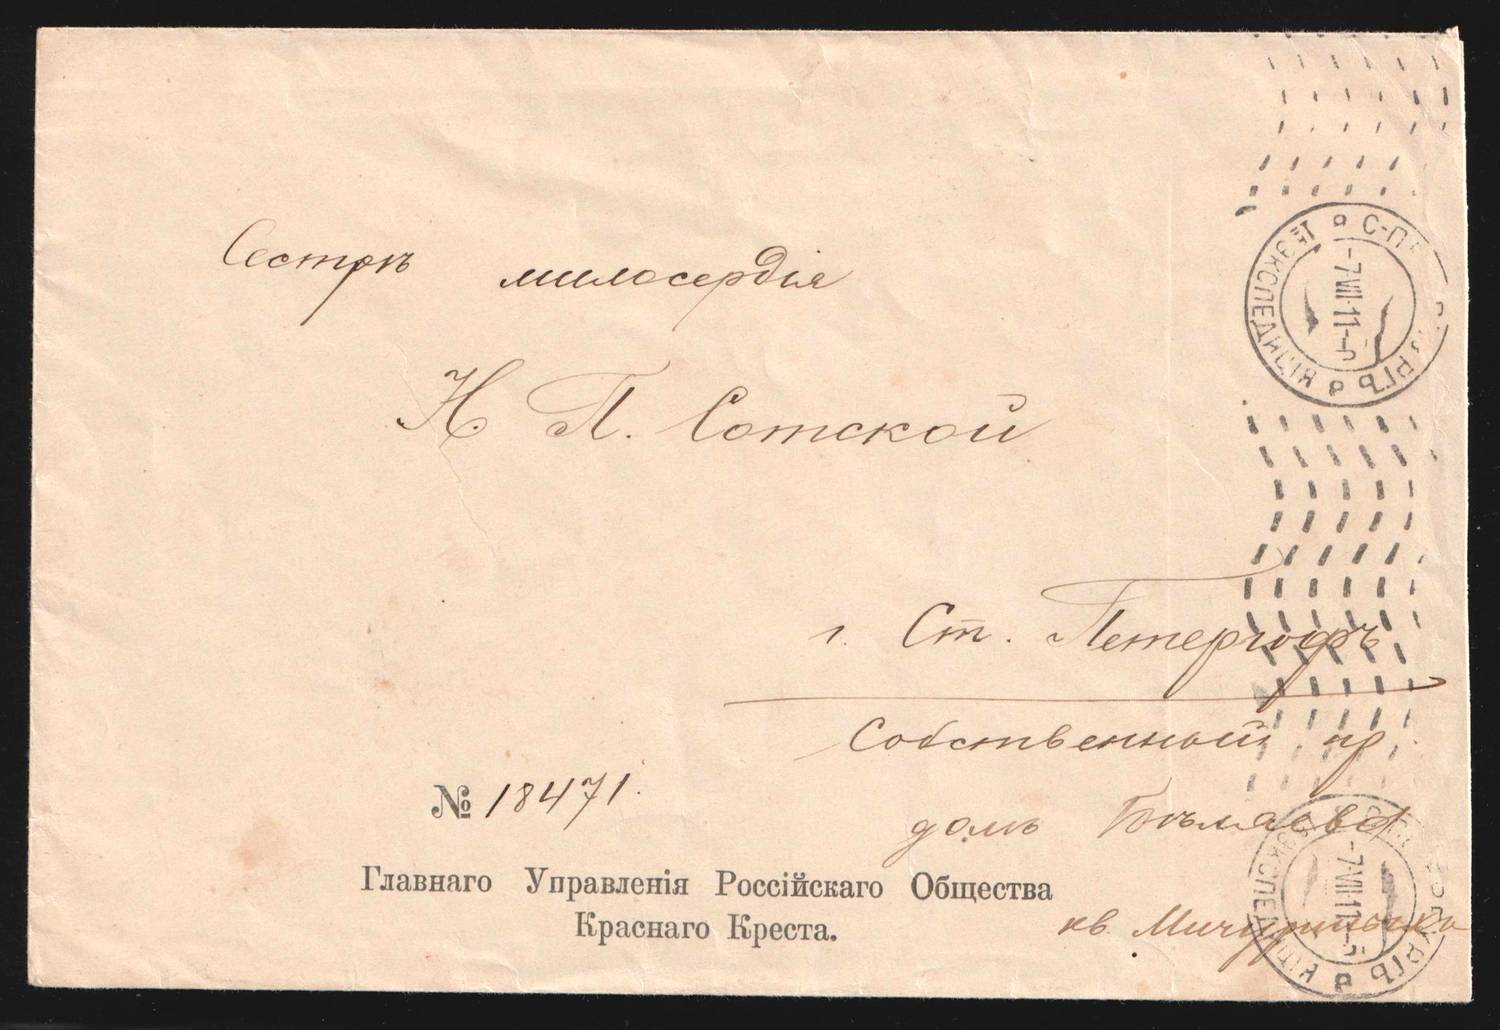 Сестрѣ милосердія
Н П. Сотской
г. Ст. Петергофъ
Собственный пр.
домъ Бѣляева
кв.
№ 18471.
Главнаго Управленія Россійскаго Общества
Краснаго Креста.
ЭКСПЕДИЦІЯ
-7.VII.11-
ЭКСПЕДИЦІЯ
-7.VII.11-